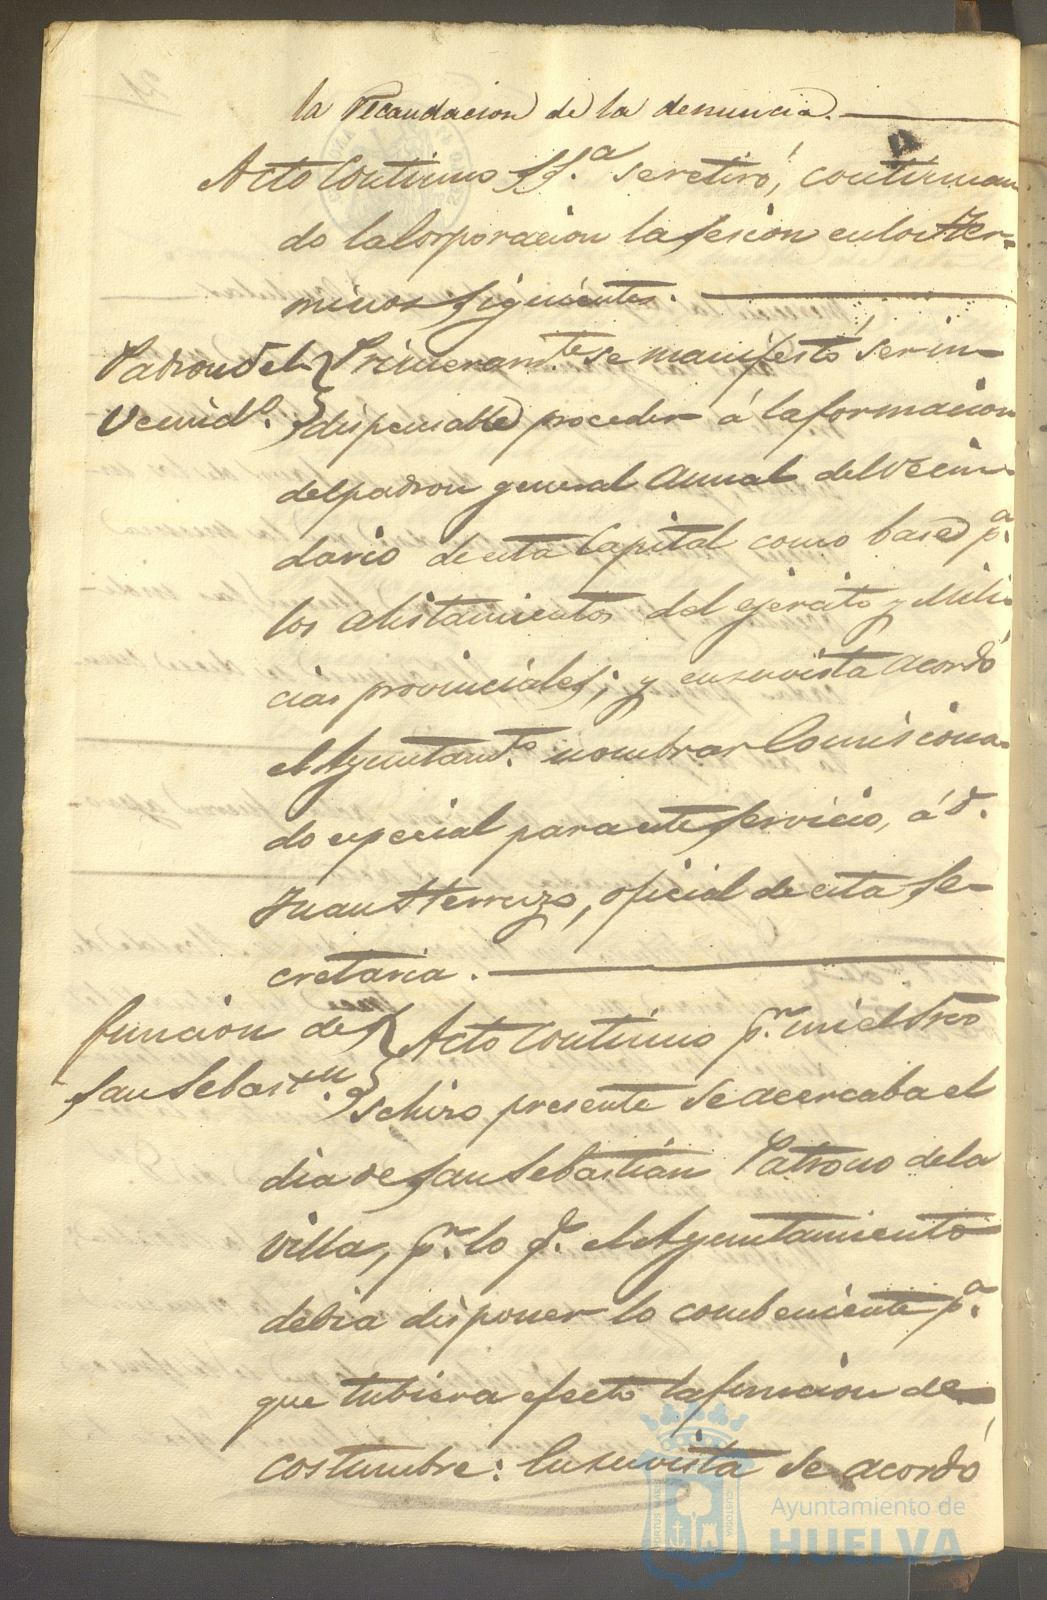 la recaudacion de la denuncia.
Acto continuo S.Sª. se retiró, continuan
do la Corporacion la sesion en los ter-
minos siguientes.
Padron del
Vecindº.
Primeramte. se manifestó ser in-
dispensable proceder á la formacion
del padron general annal del vecin-
dario de esta Capital como base pª.
los alistamientos del ejercito y Mili-
cias provinciales; y en su vista acordó
el Ayuntamto. nombrar Comisiona-
do especial para este servicio, á D.
Juan Herrezo, oficial de esta Se-
cretaria.
funcion de
San Sebastn.
Acto continuo pr. mi el Srio
se hizo presente se acercaba el
dia de San Sebastián Patrono de la
Villa, pr. lo q. el Ayuntamiento
debia disponer lo combeniente pª.
que tubiera efecto la funcion de
costumbre: En su vista se acordó
Ayuntamiento de
HUELVA